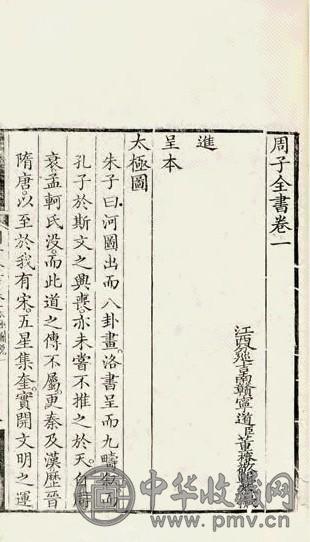 周子全書卷一
江西分巡吉南贛寧道臣董榕
進
呈本
太極圖
朱子曰河圖出而八卦畫洛書呈而九疇敘而
孔子於斯文之興喪亦未嘗不推之於天自周
衰孟軻氏没而此道之傳不屬更秦及漢歷晉
隋唐以至於我有宋五星集奎實開文明之運
中华收藏网
www.pmv.cn